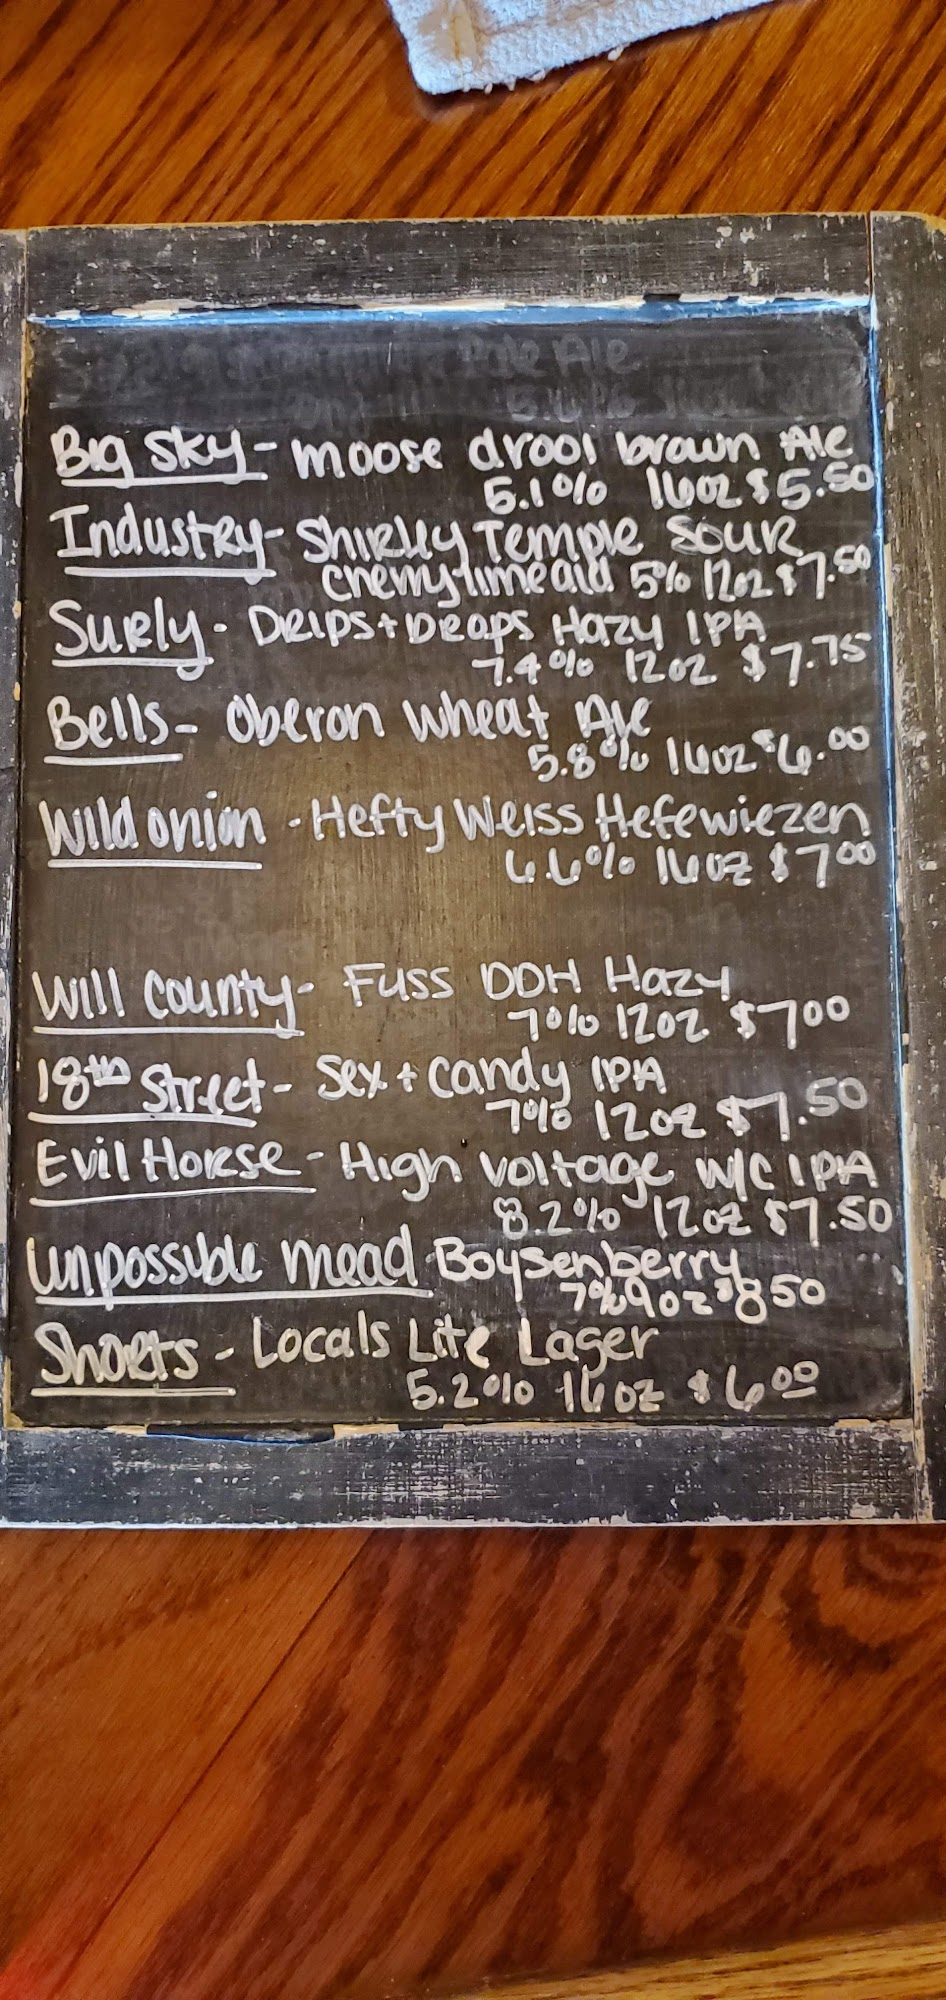 Pale Ale
Big Sky - moose drool brown Ale
5.1% 16oz $5.50
Industry - Shirley Temple Sour
cherry limeaid 5% 12oz $7.50
Surly - Drips + Drops Hazy IPA
7.4% 12oz $7.75
Bells - Oberon Wheat Ale
5.8% 16oz $6.00
Wild onion - Hefty Weiss Hefewiezen
6.6% 16oz $7 00
Will County - Fuss DDH Hazy
7% 12oz $7 00
18th Street - Sex + Candy IPA
7% 12oz $7.50
Evil Horse - High Voltage W/C IPA
8.2% 12oz $7.50
Unpossible Mead Boysenberry
7% 9oz $8 50
Shorts - Locals Lite Lager
5.2% 16oz $6 00